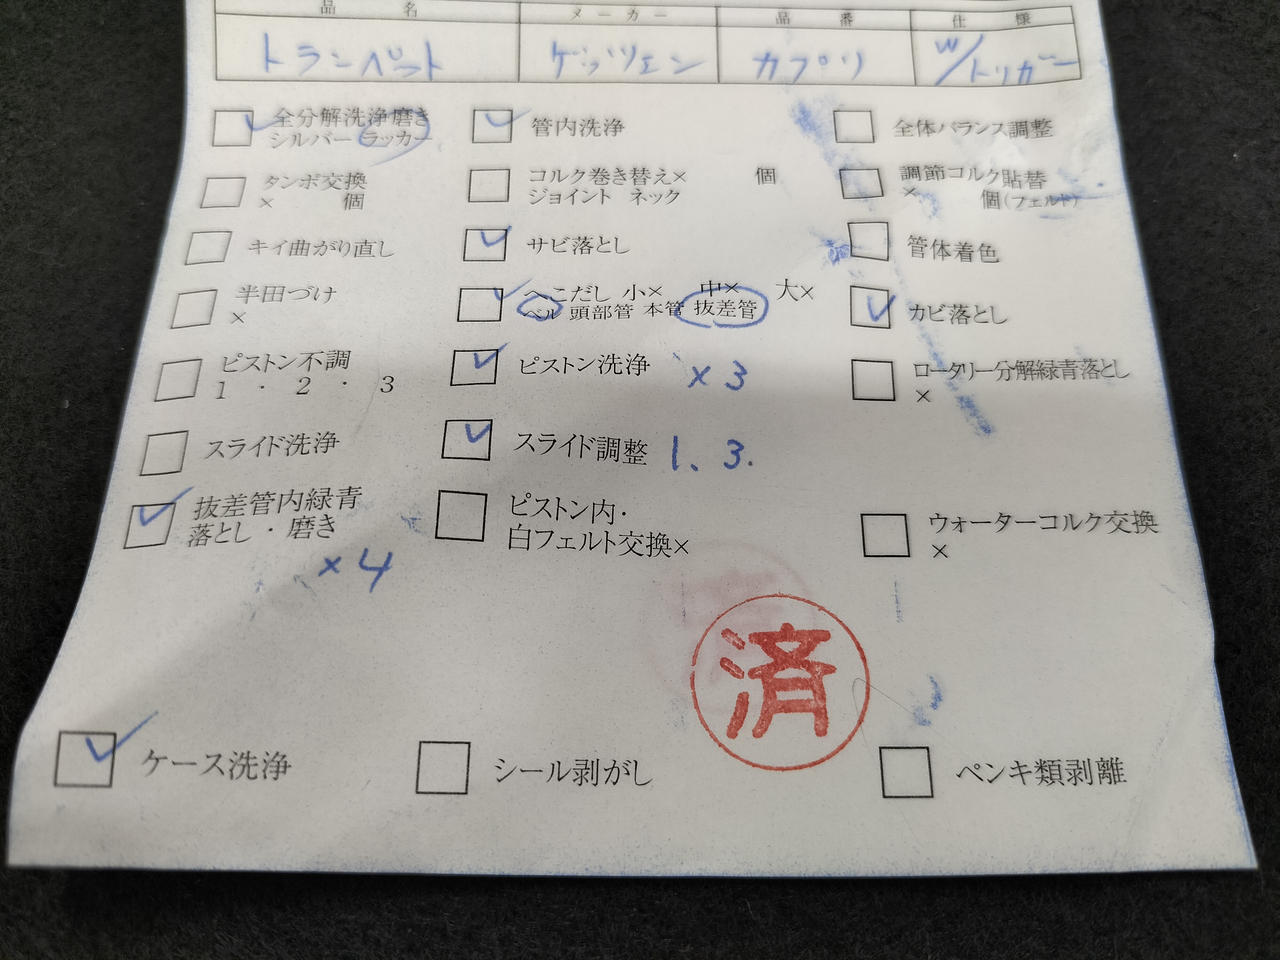 品名 メーカー 品番 仕様
トランペット ゲッツェン カプリ w/トリガー
全分解洗浄磨き 管内洗浄 全体バランス調整
シルバー ラッカー
タンポ交換 コルク巻き替え× 個 調節コルク貼替
× 個 ジョイント ネック × 個(フェルト)
キイ曲がり直し サビ落とし 管体着色
半田づけ へこだし 小× 中× 大× カビ落とし
× ベル 頭部管 本管 抜差管
ピストン不調 ピストン洗浄 ×3 ロータリー分解緑青落とし
1・2・3 ×
スライド洗浄 スライド調整 1、3.
抜差管内緑青 ピストン内・ ウォーターコルク交換
落とし・磨き 白フェルト交換× ×
×4
済
ケース洗浄 シール剥がし ペンキ類剥離